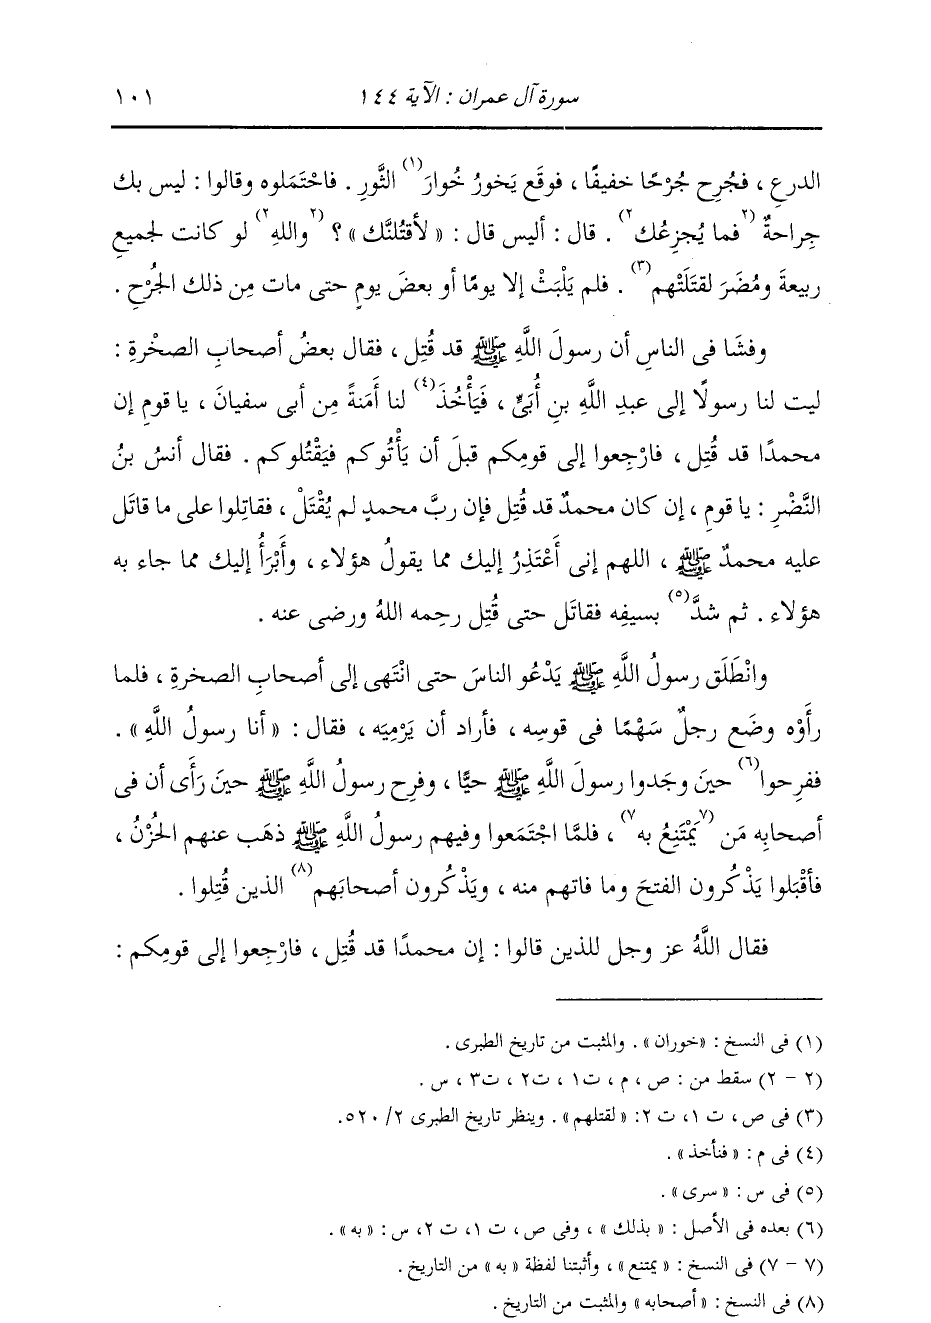 سورة آل عمران : الآية ١٤٤ ١٠١
الدرعِ ، فجُرِح جُرْحًا خفيفًا ، فوقَع يَخورُ خُوارَ(١) الثَّورِ . فاحْتَملوه وقالوا : ليس بك
جِراحةٌ (٢فما يُجزِعُك٢) . قال : أليس قال : « لأقتُلنَّك » ؟ (٢واللهِ٢) لو كانت لجميعِ
ربيعةَ ومُضَرَ لقتَلَتْهم(٣) . فلم يَلْبَثْ إلا يومًا أو بعضَ يومٍ حتى مات مِن ذلك الجُرْحِ .
وفشَا فى الناسِ أن رسولَ اللَّهِ ﷺ قد قُتِل ، فقال بعضُ أصحابِ الصخْرةِ :
ليت لنا رسولًا إلى عبدِ اللَّهِ بنِ أُبَىٍّ ، فَيَأْخُذَ(٤) لنا أَمَنةً مِن أبى سفيانَ ، يا قومِ إن
محمدًا قد قُتِل ، فارْجِعوا إلى قومِكم قبلَ أن يَأْتُوكم فيَقْتُلوكم . فقال أنسُ بنُ
النَّضْرِ : يا قومِ ، إن كان محمدٌ قد قُتِل فإن ربَّ محمدٍ لم يُقْتَلْ ، فقاتِلوا على ما قاتَل
عليه محمدٌ ﷺ ، اللهم إنى أَعْتَذِرُ إليك مما يقولُ هؤلاء ، وأَبْرَأُ إليك مما جاء به
هؤلاء . ثم شدَّ(٥) بسيفِه فقاتَل حتى قُتِل رحِمه اللهُ ورضى عنه .
وانْطَلَق رسولُ اللَّهِ ﷺ يَدْعُو الناسَ حتى انْتَهى إلى أصحابِ الصخرةِ ، فلما
رأَوْه وضَع رجلٌ سَهْمًا فى قوسِه ، فأراد أن يَرْمِيَه ، فقال : « أنا رسولُ اللَّهِ » .
ففرِحوا(٦) حينَ وجَدوا رسولَ اللَّهِ ﷺ حيًّا ، وفرِح رسولُ اللَّهِ ﷺ حينَ رَأَى أن فى
أصحابِه مَن (٧يَمْتَنِعُ به٧) ، فلمَّا اجْتَمَعوا وفيهم رسولُ اللَّهِ ﷺ ذهَب عنهم الحُزْنُ ،
فأقْبَلوا يَذْكُرون الفتحَ وما فاتهم منه ، ويَذْكُرون أصحابَهم(٨) الذين قُتِلوا .
فقال اللَّهُ عز وجل للذين قالوا : إن محمدًا قد قُتِل ، فارْجِعوا إلى قومِكم :
(١) فى النسخ : «خوران» . والمثبت من تاريخ الطبرى .
(٢ - ٢) سقط من : ص ، م ، ت١ ، ت٢ ، ت٣ ، س .
(٣) فى ص ، ت ١، ت ٢: « لقتلهم» . وينظر تاريخ الطبرى ٢/ ٥٢٠.
(٤) فى م : « فنأخذ » .
(٥) فى س : « سرى » .
(٦) بعده فى الأصل : « بذلك » ، وفى ص ، ت ١، ت ٢، س : « به» .
(٧ - ٧) فى النسخ : « يمتنع» ، وأثبتنا لفظة « به » من التاريخ .
(٨) فى النسخ : « أصحابه» والمثبت من التاريخ .